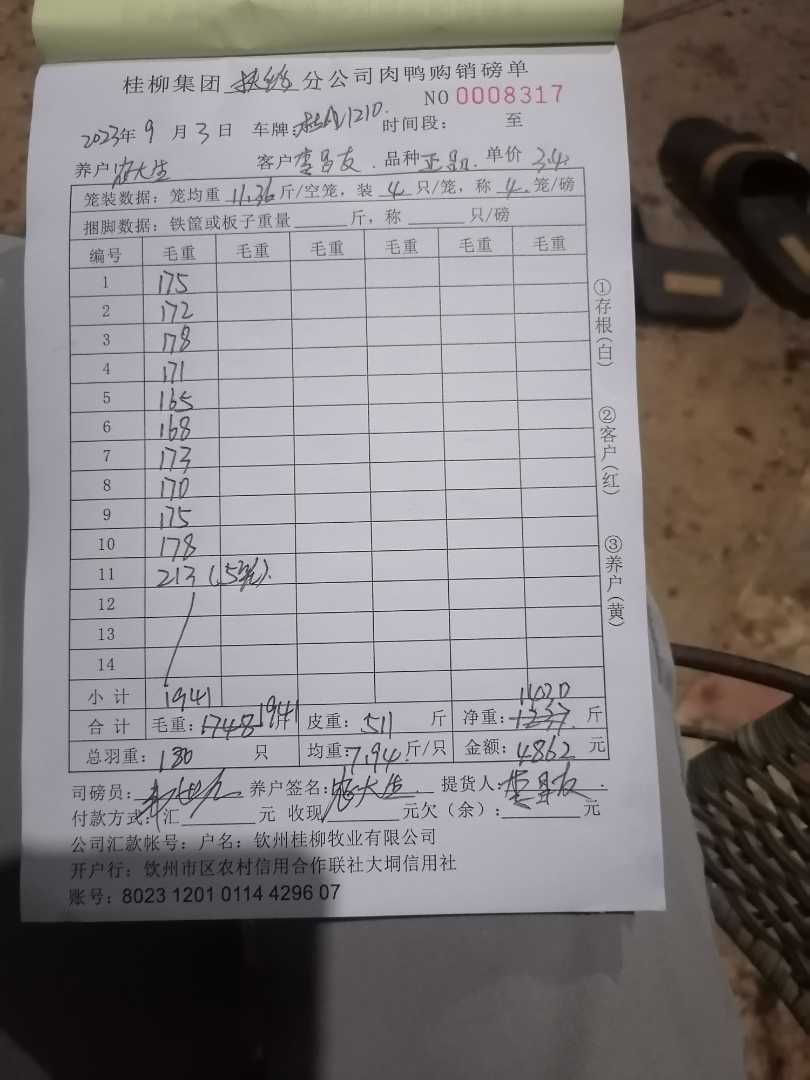 桂柳集团 扶绥 分公司肉鸭购销磅单
NO 0008317
2023年 9 月 3 日 车牌: 1210. 时间段: 至
养户 大生 客户 李昌友 . 品种 正品 . 单价 3.4
笼装数据: 笼均重 11.36 斤/空笼, 装 4 只/笼, 称 4 笼/磅
捆脚数据: 铁筐或板子重量 斤, 称 只/磅
编号 毛重 毛重 毛重 毛重 毛重 毛重
1 175
2 172
3 178
4 171
5 165
6 168
7 173
8 170
9 175
10 178
11 213 (5笼).
12
13
14
小计 1941
1430
合计 毛重: 1748 1941 斤 皮重: 511 斤 净重: 1237 斤
总羽重: 180 只 均重: 7.94 斤/只 金额: 4862 元
司磅员: 养户签名: 大生 . 提货人: 李昌友 .
付款方式: 汇 元 收现 元欠(余): 元
公司汇款帐号: 户名: 钦州桂柳牧业有限公司
开户行: 钦州市区农村信用合作联社大垌信用社
账号: 8023 1201 0114 4296 07
①存根(白)
②客户(红)
③养户(黄)